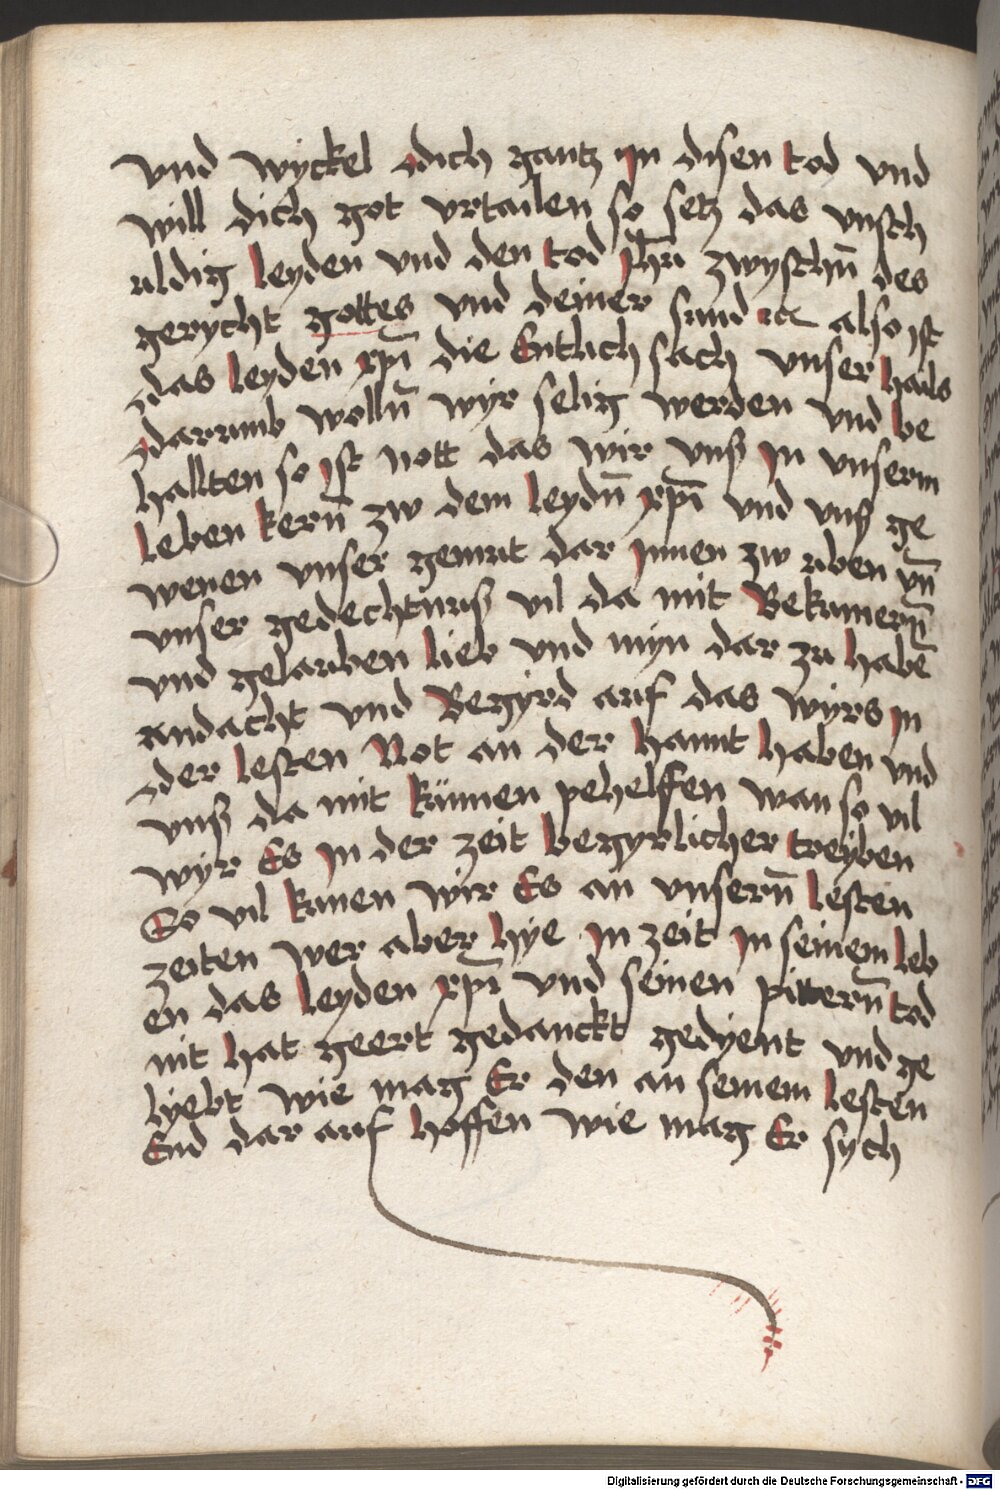 vnd wyckel dich gantz in disen tod vnd
will dich got vrtailen so setz das vnsch
uldig leyden vnd den tod jhũ zwyschñ des
gerycht gottes vnd deiner sund etc also ist
das leyden xp̄i die Entlich sach vnser hails
darumb wollñ wyr selig werden vnd be
hallten so ist nott das wir vnß in vnserm
leben kerñ zw dem leydñ xp̄i vnd vnß ge
wenen vnser gemut dar jnnen zw uben vñ
vnser gedechtnuß vil da mit Bekumerñ
vnd gelauben lieb vnd myn dar zu habẽ
andacht vnd Begyrd auf das wyrs in
der lesten Not an der hannt haben vnd
vnß da mit künnen pehelffen wan so vil
wyr Es in der zeit begyrlicher treyben
So vil kunen wir Es an vnserñ lesten
zeiten wer aber hye in zeit in seinem leb
en das leyden xp̄i vnd seinen pitterñ tod
nit hat geert gedanckt gedyent vnd ge
lyebt wie mag Er den an seinem lesten
End dar auf hoffen wie mag Er sych
Digitalisierung gefördert durch die Deutsche Forschungsgemeinschaft - DFG